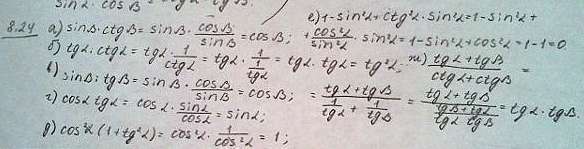 sinα·cosβ ctgα·tgβ
8.24 а) sinβ·ctgβ = sinβ · cosβ/sinβ = cosβ;
б) tgα·ctgα = tgα · 1/ctgα = tgα · 1/(1/tgα) = tgα · tgα = tg²α;
в) sinβ : tgβ = sinβ · cosβ/sinβ = cosβ;
г) cosα tgα = cosα · sinα/cosα = sinα;
д) cos²α (1 + tg²α) = cos²α · 1/cos²α = 1;
е) 1 - sin²α + ctg²α · sin²α = 1 - sin²α +
+ cos²α/sin²α · sin²α = 1 - sin²α + cos²α = 1 - 1 = 0
ж) (tgα + tgβ)/(ctgα + ctgβ) =
= (tgα + tgβ)/(1/tgα + 1/tgβ) = (tgα + tgβ)/((tgβ + tgα)/(tgα tgβ)) = tgα · tgβ.